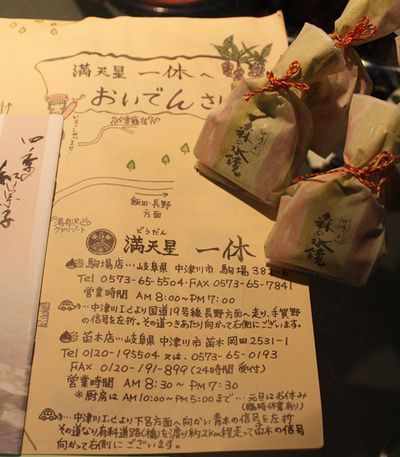 満天星 一休へ
おいでんさい
飯田・長野
方面
湯舟沢
どうだん
満天星 一休
駒場店…岐阜県 中津川市 駒場 382-6
Tel 0573-65-5504・FAX 0573-65-7841
営業時間 AM 8:00~PM 7:00
…中津川I.cより国道19号線長野方面へ走り、手賀野
の信号を左折。その道つきあたり向かって右側にございます。
苗木店…岐阜県 中津川市 苗木 岡田 2531-1
Tel 0120-195504 又は、0573-65-0193
FAX 0120-191-899 (24時間 受付)
営業時間 AM 8:30~PM 7:30
※ 厨房は AM 10:00~PM 5:00まで… 元日はお休み
(臨時休業有り)
…中津川I.cより下呂方面へ向かい 青木の信号を 左折
その道なり有料道路(橋)を渡り約2km程走って苗木の信号
向かって右側に ございます。
四季
森の水鏡
森の水鏡